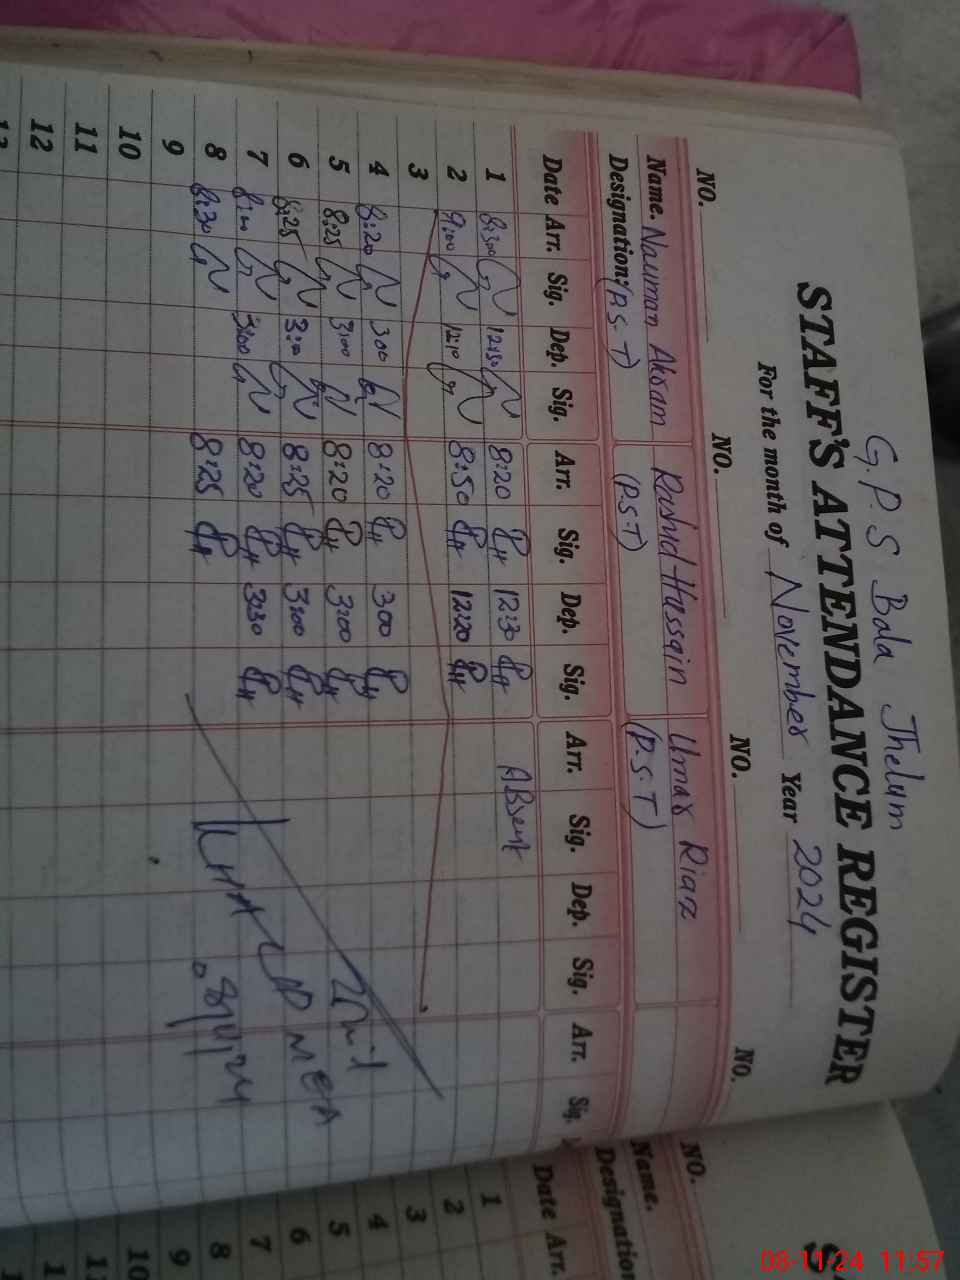 G.P.S Bala Jhelum
STAFF'S ATTENDANCE REGISTER
For the month of November Year 2024
NO. NO. NO. NO.
Name. Nauman Akram Rashid Hussain Umar Riaz
Designation: (P.S.T) (P.S.T) (P.S.T)
Date Arr. Sig. Dep. Sig. Arr. Sig. Dep. Sig. Arr. Sig. Dep. Sig. Arr. Sig.
1 8:30 12:30 8:20 12:30 ABsent
2 9:00 12:10 8:50 12:20
3
4 8:20 3:00 8:20 3:00
5 8:25 3:00 8:20 3:00
6 8:25 3:00 8:25 3:00
7 8:20 3:30
8 8:30 8:25
9
10
11
12
NO.
Name.
Designation
Date Arr.
1
2
3
4
5
6
7
8
9
10
08-11-24 11:57